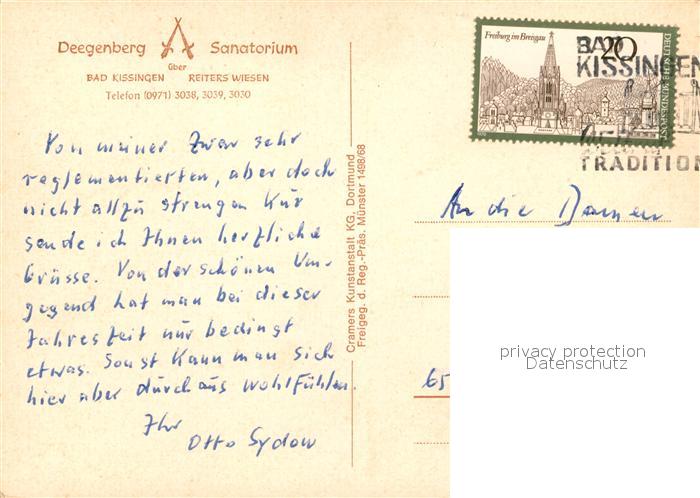 Deegenberg Sanatorium
über
BAD KISSINGEN REITERSWIESEN
Telefon (0971) 3038, 3039, 3030
Von meiner zwar sehr
reglementierten, aber doch
nicht allzu strengen Kur
sende ich Ihnen herzliche
Grüsse. Von der schönen Um-
gegend hat man bei dieser
Jahreszeit nur bedingt
etwas. Sonst kann man sich
hier aber durchaus wohlfühlen.
Ihr
Otto Sydow
Cramers Kunstanstalt KG, Dortmund
Freigeg. d. Reg.-Präs. Münster 1498/68
Freiburg im Breisgau
20
DEUTSCHE BUNDESPOST
BAD
KISSINGEN
TRADITION
An die Damen
65
privacy protection
Datenschutz